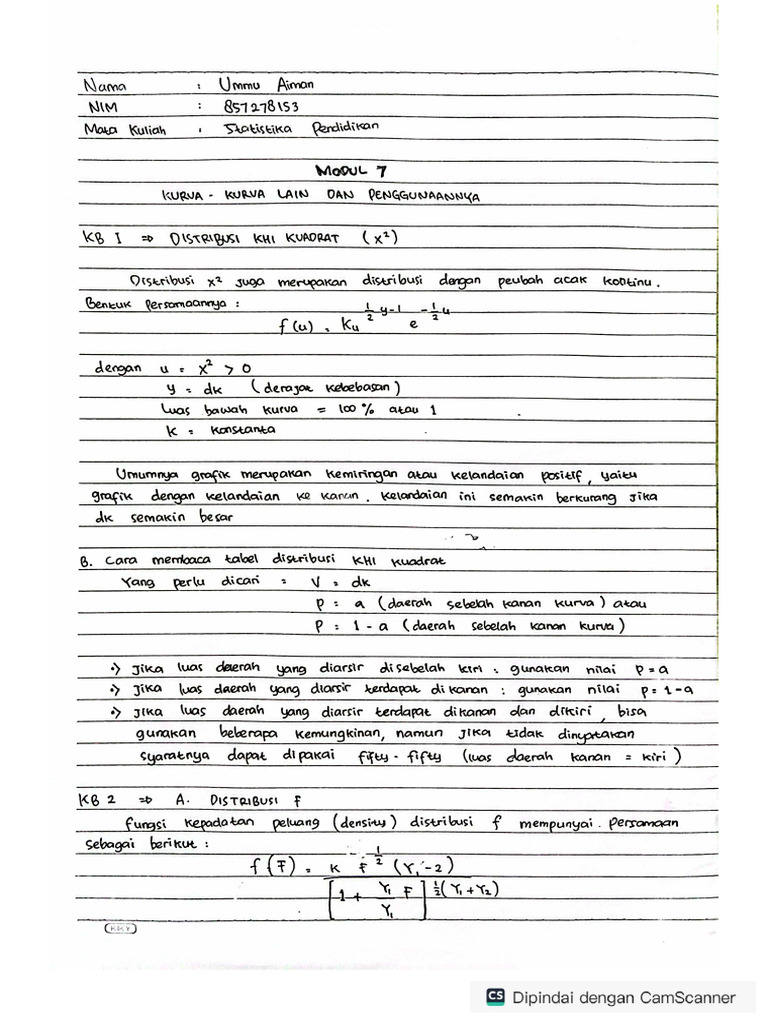 Nama : Ummu Aiman
NIM : 857278153
Mata Kuliah : Statistika Pendidikan
MODUL 7
KURVA - KURVA LAIN DAN PENGGUNAANNYA
KB I => DISTRIBUSI KHI KUADRAT (x²)
Distribusi x² juga merupakan distribusi dengan peubah acak kontinu.
Bentuk Persamaannya :
f(u) = Ku^(1/2 y-1) e^(-1/2 u)
dengan u = x² > 0
y = dk (derajat kebebasan)
Luas bawah kurva = 100% atau 1
K = Konstanta
Umumnya grafik merupakan kemiringan atau kelandaian positif, yaitu
grafik dengan kelandaian ke kanan. Kelandaian ini semakin berkurang jika
dk semakin besar
B. Cara membaca tabel distribusi KHI Kuadrat
Yang perlu dicari = V = dk
P = a (daerah sebelah kanan kurva) atau
P = 1 - a (daerah sebelah kanan kurva)
•) Jika luas daerah yang diarsir disebelah kiri : gunakan nilai P = a
•) Jika luas daerah yang diarsir terdapat dikanan : gunakan nilai P = 1-a
•) Jika luas daerah yang diarsir terdapat dikanan dan dikiri, bisa
gunakan beberapa kemungkinan, namun jika tidak dinyatakan
syaratnya dapat dipakai fifty-fifty (luas daerah kanan = kiri)
KB 2 => A. DISTRIBUSI F
Fungsi Kepadatan peluang (density) distribusi f mempunyai Persamaan
sebagai berikut :
f(F) = K F^(1/2 (Y₁-2))
[1 + Y₁ F / Y₁]^(1/2 (Y₁+Y₂))
KKY
CS Dipindai dengan CamScanner